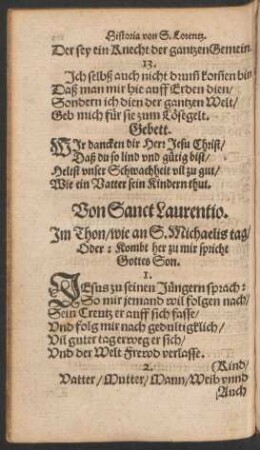 Historia von S. Lorentz.
Der sey ein Knecht der gantzen Gemein.
13.
Ich selbß auch nicht drum̃ kom̃en bin
Daß man mir hie auff Erden dien/
Sondern ich dien der gantzen Welt/
Geb mich für sie zum Lösegelt.
Gebett.
WIr dancken dir Herr Jesu Christ/
Daß du so lind vnd gütig bist/
Helfst vnser Schwachheit vil zu gut/
Wie ein Vatter sein Kindern thut.
Von Sanct Laurentio.
Im Thon/wie an S. Michaelis tag/
Oder: Kombt her zu mir spricht
Gottes Son.
1.
JEsus zu seinen Jüngern sprach:
So mir jemand wil folgen nach/
Sein Creutz er auff sich fasse/
Vnd folg mir nach gedultigklich/
Vil guter tag erweg er sich/
Vnd der Welt Frewd verlasse.
2. (Kind/
Vatter/Mutter/Mann/Weib vnnd
(Auch